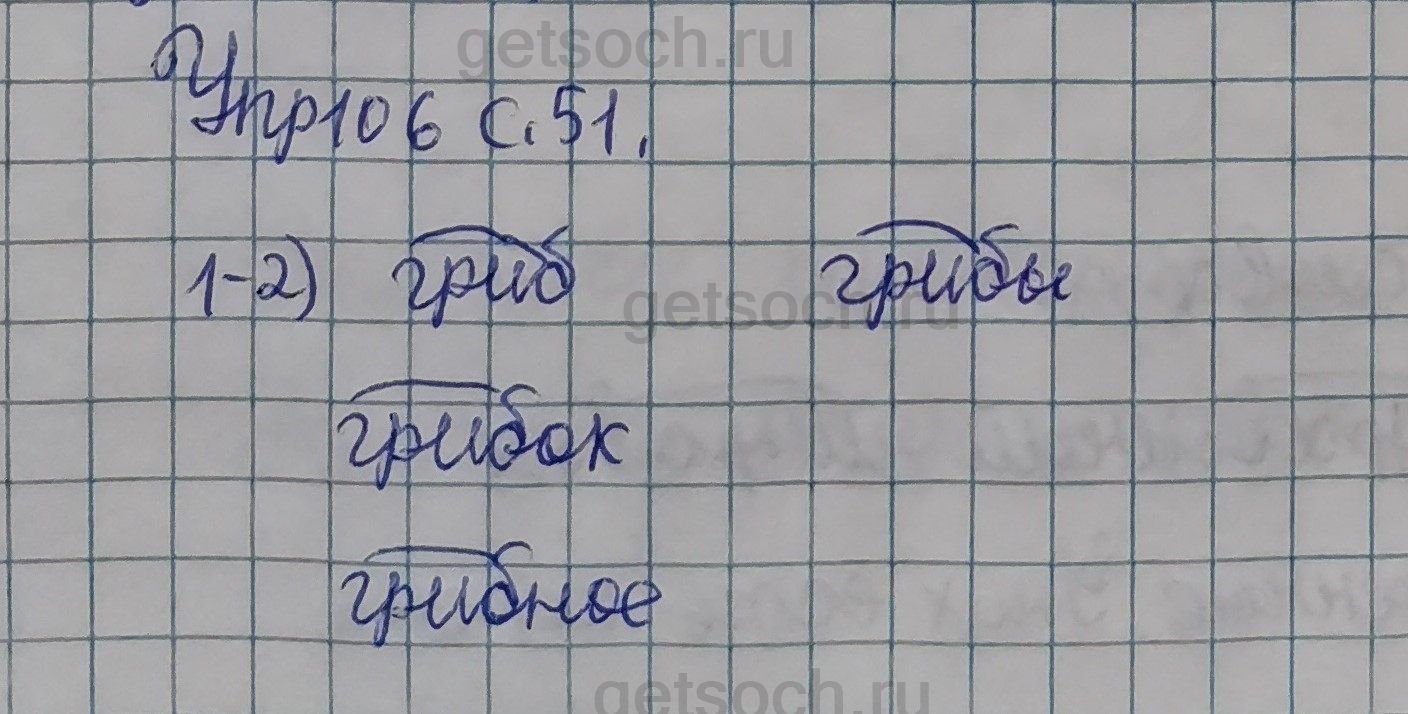 getsoch.ru
Упр106 с.51.
1-2) гриб грибы
getsoch.ru
грибок
грибное
getsoch.ru